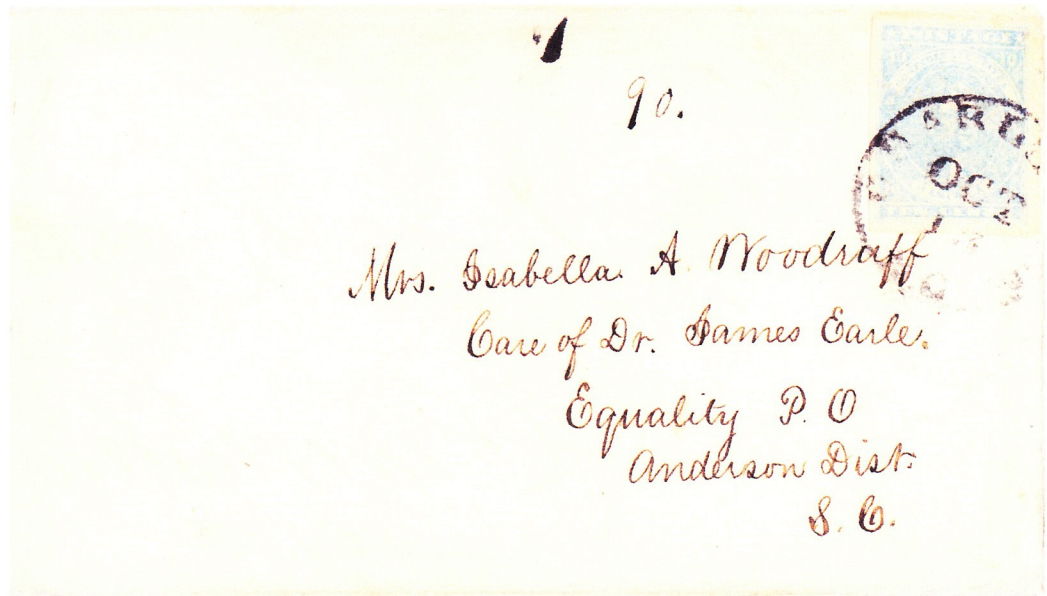 90.
10
OCT
Mrs. Isabella. A. Woodraff
Care of Dr. James Earle.
Equality P. O
Anderson Dist.
S. C.